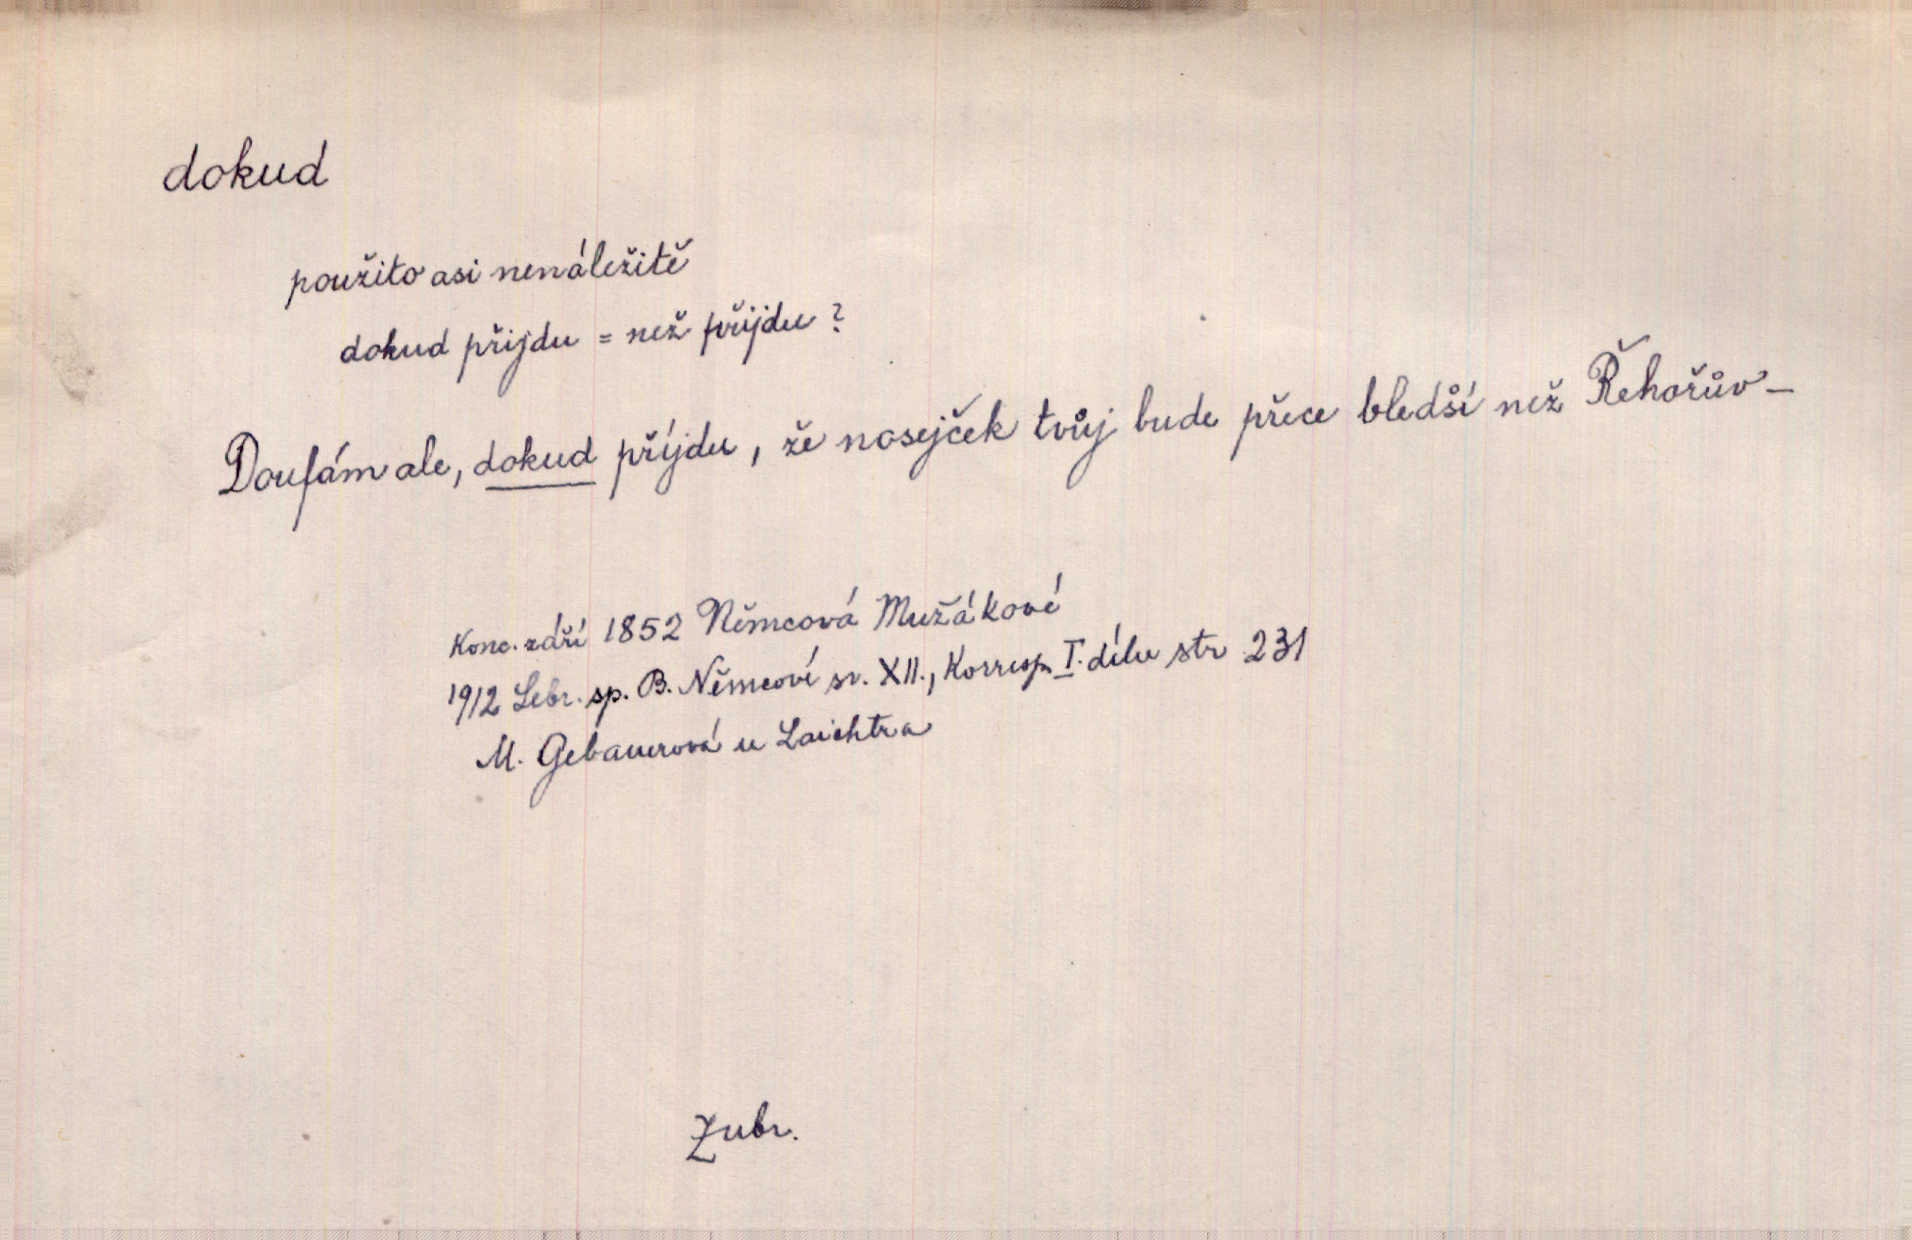 dokud
použito asi nenáležitě
dokud přijdu = než přijdu?
Doufám ale, dokud příjdu, že nosejček tvůj bude přece bledší než Řehořův –
Konc. září 1852 Němcová Mužákové
1912 Sebr. sp. B. Němcové sv. XII., Korresp. I. dílu str 231
M. Gebauerová u Laichtra
Zubr.